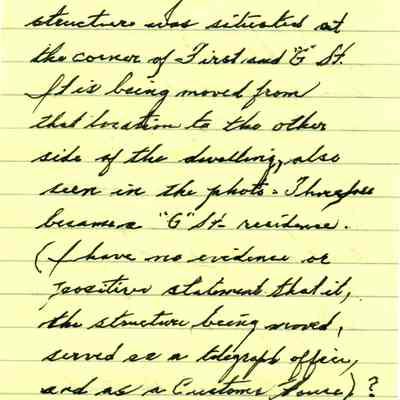 structure was situated at
the corner of First and "G" St.
It is being moved from
that location to the other
side of the dwelling, also
seen in the photo. Therefore
became a "G" St. residence.
(I have no evidence or
positive statement that it,
the structure being moved,
served as a telegraph office,
and as a Customs House)?